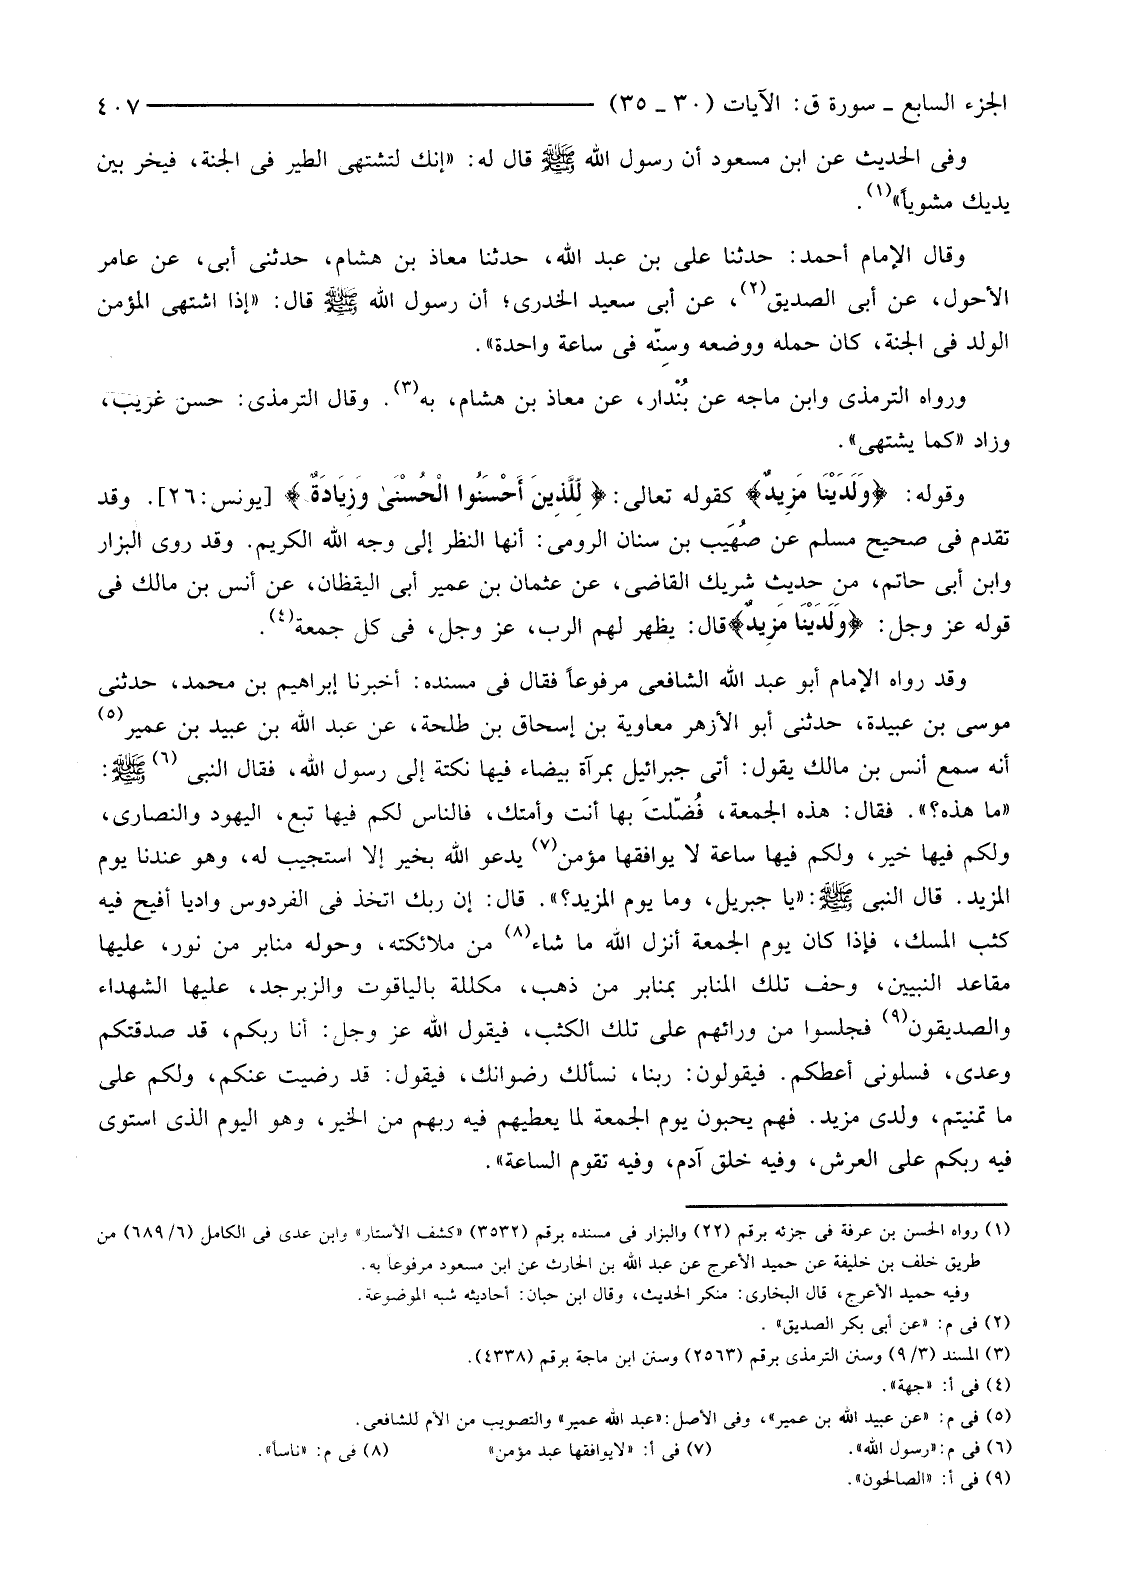 الجزء السابع ـ سورة ق: الآيات (٣٠ ـ ٣٥) ٤٠٧
وفى الحديث عن ابن مسعود أن رسول الله ﷺ قال له: «إنك لتشتهى الطير فى الجنة، فيخر بين
يديك مشوياً»(١).
وقال الإمام أحمد: حدثنا على بن عبد الله، حدثنا معاذ بن هشام، حدثنى أبى، عن عامر
الأحول، عن أبى الصديق(٢)، عن أبى سعيد الخدرى؛ أن رسول الله ﷺ قال: «إذا اشتهى المؤمن
الولد فى الجنة، كان حمله ووضعه وسِنّه فى ساعة واحدة».
ورواه الترمذى وابن ماجه عن بُنْدار، عن معاذ بن هشام، به(٣). وقال الترمذى: حسن غريب،
وزاد «كما يشتهى».
وقوله: ﴿وَلَدَيْنَا مَزِيدٌ﴾ كقوله تعالى: ﴿ لِّلَّذِينَ أَحْسَنُوا الْحُسْنَىٰ وَزِيَادَةٌ ﴾ [يونس:٢٦]. وقد
تقدم فى صحيح مسلم عن صُهَيب بن سنان الرومى: أنها النظر إلى وجه الله الكريم. وقد روى البزار
وابن أبى حاتم، من حديث شريك القاضى، عن عثمان بن عمير أبى اليقظان، عن أنس بن مالك فى
قوله عز وجل: ﴿وَلَدَيْنَا مَزِيدٌ﴾قال: يظهر لهم الرب، عز وجل، فى كل جمعة(٤).
وقد رواه الإمام أبو عبد الله الشافعى مرفوعاً فقال فى مسنده: أخبرنا إبراهيم بن محمد، حدثنى
موسى بن عبيدة، حدثنى أبو الأزهر معاوية بن إسحاق بن طلحة، عن عبد الله بن عبيد بن عمير(٥)
أنه سمع أنس بن مالك يقول: أتى جبرائيل بمرآة بيضاء فيها نكتة إلى رسول الله، فقال النبى (٦) ﷺ:
«ما هذه؟». فقال: هذه الجمعة، فُضّلتَ بها أنت وأمتك، فالناس لكم فيها تبع، اليهود والنصارى،
ولكم فيها خير، ولكم فيها ساعة لا يوافقها مؤمن(٧) يدعو الله بخير إلا استجيب له، وهو عندنا يوم
المزيد. قال النبى ﷺ:«يا جبريل، وما يوم المزيد؟». قال: إن ربك اتخذ فى الفردوس واديا أفيح فيه
كثب المسك، فإذا كان يوم الجمعة أنزل الله ما شاء(٨) من ملائكته، وحوله منابر من نور، عليها
مقاعد النبيين، وحف تلك المنابر بمنابر من ذهب، مكللة بالياقوت والزبرجد، عليها الشهداء
والصديقون(٩) فجلسوا من ورائهم على تلك الكثب، فيقول الله عز وجل: أنا ربكم، قد صدقتكم
وعدى، فسلونى أعطكم. فيقولون: ربنا، نسألك رضوانك، فيقول: قد رضيت عنكم، ولكم على
ما تمنيتم، ولدى مزيد. فهم يحبون يوم الجمعة لما يعطيهم فيه ربهم من الخير، وهو اليوم الذى استوى
فيه ربكم على العرش، وفيه خلق آدم، وفيه تقوم الساعة».
(١) رواه الحسن بن عرفة فى جزئه برقم (٢٢) والبزار فى مسنده برقم (٣٥٣٢) «كشف الأستار» وابن عدى فى الكامل (٦٨٩/٦) من
طريق خلف بن خليفة عن حميد الأعرج عن عبد الله بن الحارث عن ابن مسعود مرفوعا به.
وفيه حميد الأعرج، قال البخارى: منكر الحديث، وقال ابن حبان: أحاديثه شبه الموضوعة.
(٢) فى م: «عن أبى بكر الصديق» .
(٣) المسند (٩/٣) وسنن الترمذى برقم (٢٥٦٣) وسنن ابن ماجة برقم (٤٣٣٨).
(٤) فى أ: «جهة».
(٥) فى م: «عن عبيد الله بن عمير»، وفى الأصل:«عبد الله عمير» والتصويب من الأم للشافعى.
(٦) فى م:«رسول الله». (٧) فى أ: «لايوافقها عبد مؤمن» (٨) فى م: «ناساً».
(٩) فى أ: «الصالحون».